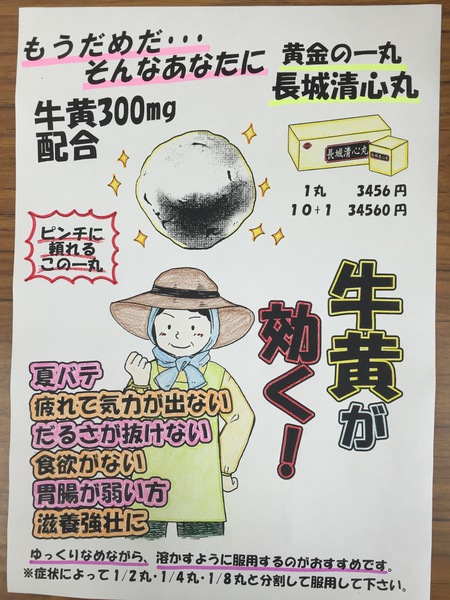 もうだめだ・・・
そんなあなたに
黄金の一丸
長城清心丸
牛黄300mg
配合
長城清心丸
1丸 3456円
10+1 34560円
ピンチに
頼れる
この一丸
牛黄が
効く!
夏バテ
疲れて気力が出ない
だるさが抜けない
食欲がない
胃腸が弱い方
滋養強壮に
ゆっくりなめながら、溶かすように服用するのがおすすめです。
※症状によって1/2丸・1/4丸・1/8丸と分割して服用して下さい。